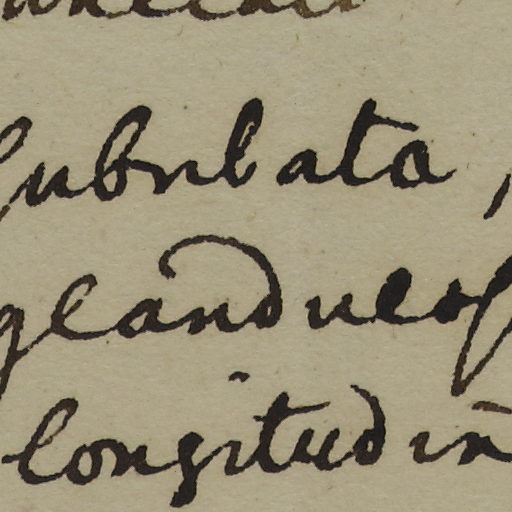 subulata,
glandulos
longitudin